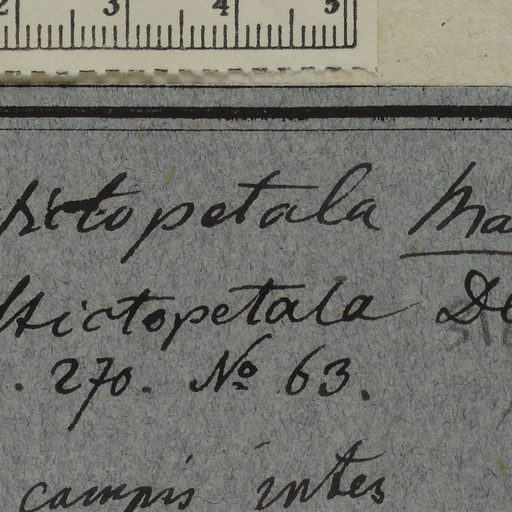 2 3 4 5
stictopetala Ma
stictopetala De
. 270. No 63.
campis inter